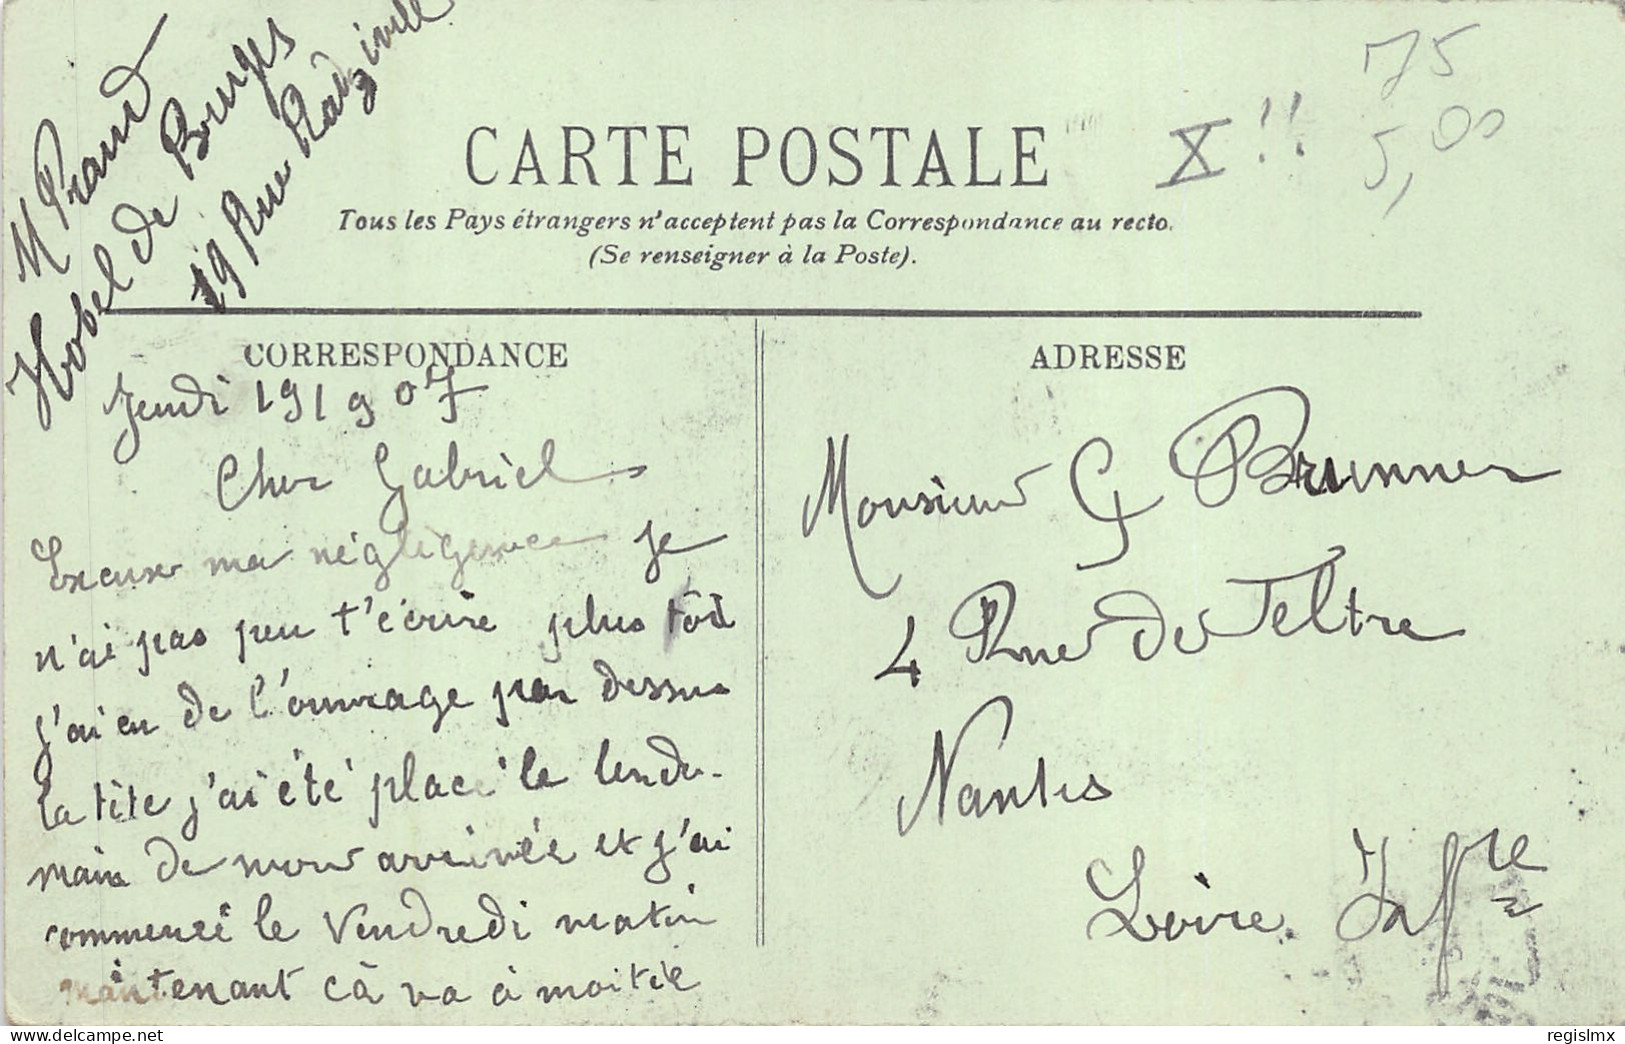 M Praud
Hobel de Bruges
19 Rue Radziwill
75
5,00
X!!
CARTE POSTALE
Tous les Pays étrangers n'acceptent pas la Correspondance au recto.
(Se renseigner à la Poste).
CORRESPONDANCE
Jeudi 19 1907
Cher Gabriel
Excuse ma négligence je
n'ai pas peu t'écrire plus tôt
j'ai eu de l'ouvrage par dessus
la tête j'ai été placé le lende-
main de mon arrivée et j'ai
commencé le Vendredi matin
maintenant cà va à moitié
ADRESSE
Monsieur G Brunner
4 Rue de Feltre
Nantes
Loire Infre
delcampe.net
regislmx